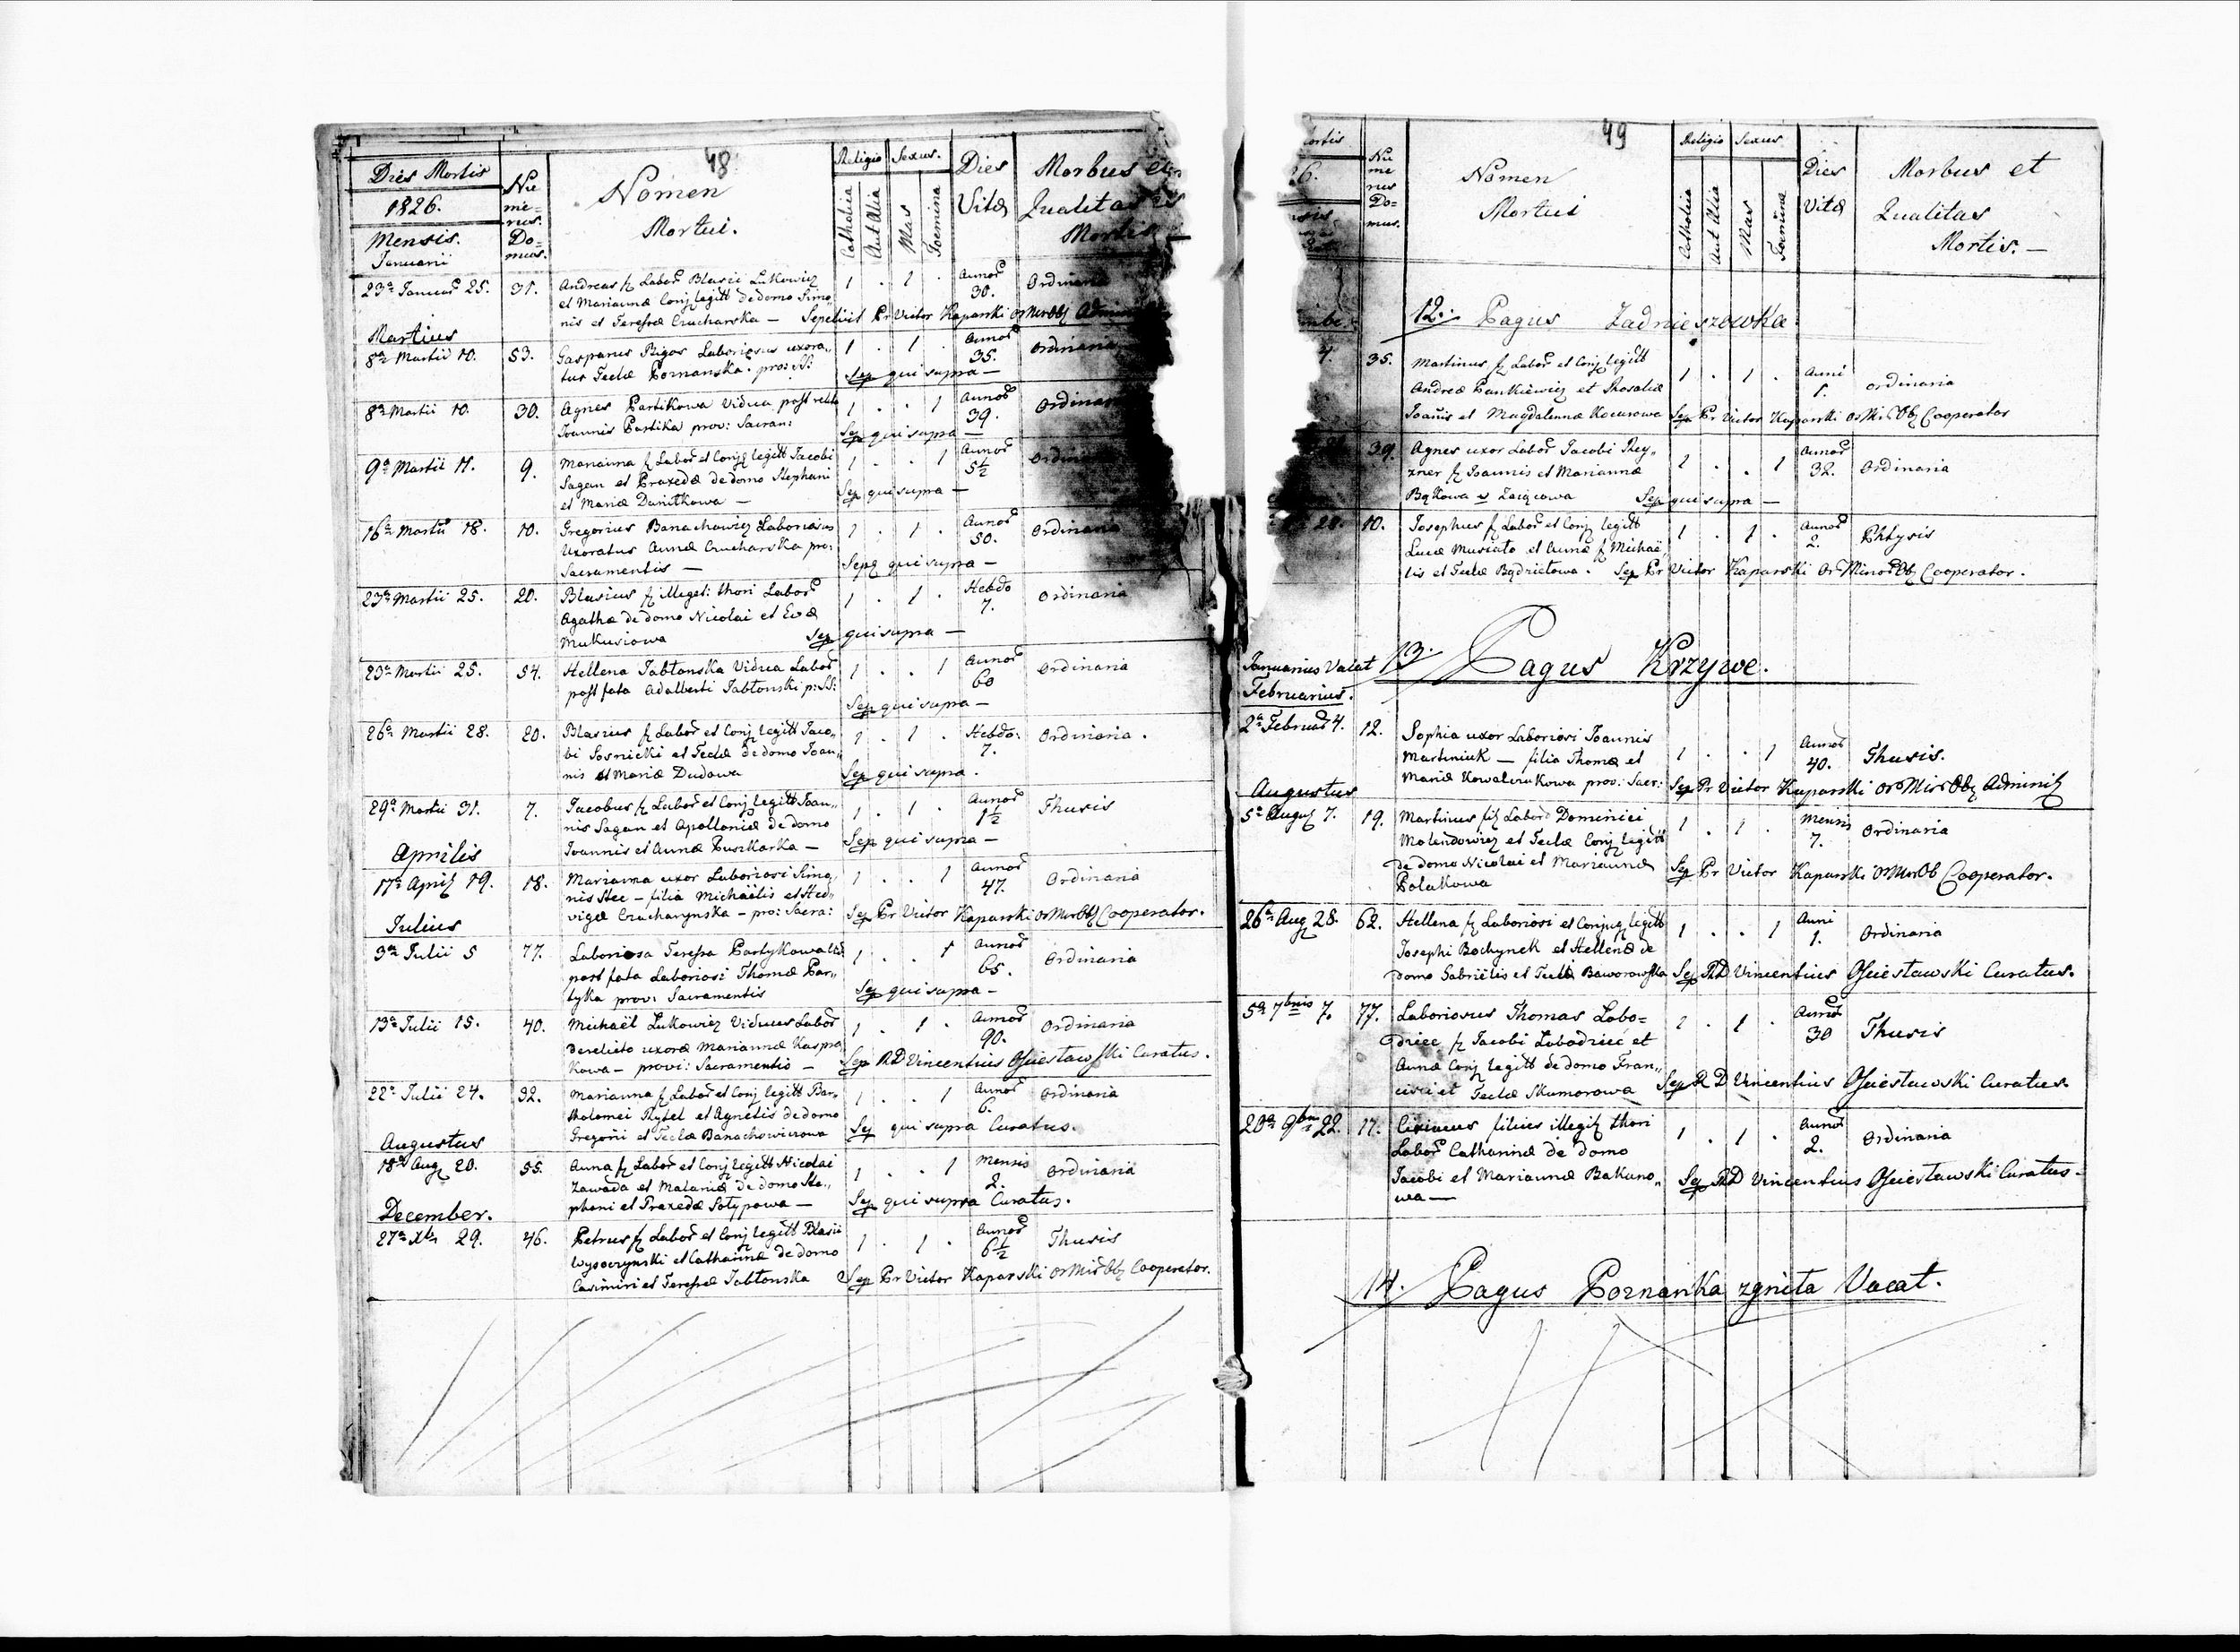 48
Dies Mortis
1826.
Mensis.
Januarii
Nu
me-
rus.
Do-
mus.
Nomen
Mortui.
Religio
Catholica
Aut Alia
Sexus.
Mas
Foemina
Dies
Vitæ
Morbus et
Qualitas
Mortis
23a Januar 25. 31. Andreas f Labor Blasii Lukowicz 1 . 1 . Annor 30. Ordinaria
et Mariannæ Conj legitt de domo Simo,,
nis et Teressæ Crucharska — Sepelivit Pr Victor Kaparski
Martius
8a Martii 10. 53. Gasparus Rigor Laboriosus uxora,, 1 . 1 . Annor 35. Ordinaria
tus Teclæ Poznanska. pro: SS: Sep qui supra —
8a Martii 10. 30. Agnes Partikowa Vidua post 1 . . 1 Annor 39. Ordinar
Joannis Partika prov: Sacram: Sep qui supra —
9a Martii 11. 9. Marianna f Labor et Conj legitt Jacobi 1 . . 1 Annor 5½ Ordina
Sagan et Praxedæ de domo Stephani
et Mariæ Danitkowa — Sep qui supra —
16a Martii 18. 10. Gregorius Banachowicz Laboriosus 1 . 1 . Annor 50. Ordinaria
Uxoratus Annæ Crucharska pro:
Sacramentis — Sep qui supra —
23a Martii 25. 20. Blasius f illegit: thori Labor 1 . 1 . Hebdo 7. Ordinaria
Agathæ de domo Nicolai et Evæ
Mukusiowa Sep qui supra —
23a Martii 25. 54. Hellena Jabłonska Vidua Labor 1 . . 1 Annor 60 Ordinaria
post fata Adalberti Jabłonski p: SS:
Sep qui supra —
26a Martii 28. 20. Blasius f Labor et Conj legitt Jaco,, 1 . 1 . Hebdo: 7. Ordinaria.
bi Sosnicki et Teclæ de domo Joan,,
nis et Mariæ Dudowa Sep qui supra.
29a Martii 31. 7. Jacobus f Labor et Conj legitt Joan,, 1 . 1 . Annor 1½ Thusis
nis Sagan et Apolloniæ de domo
Joannis et Annæ Puszkarka — Sep qui supra —
Aprilis
17a April 19. 18. Marianna uxor Laboriosi Simo, 1 . . 1 Annor 47. Ordinaria
nis Stec — filia Michaëlis et Hed,
vigæ Crucharynska — pro: Sacra: Sep Pr Victor Kaparski Or Mir Ob Cooperator.
Julius
3a Julii 5 77. Laboriosa Teressa Partykowa 1 . . 1 Annor 65. Ordinaria
post fata Laboriosi Thomæ Par,,
tyka prov: Sacramentis Sep qui supra —
13a Julii 15. 40. Michaël Lukowicz Viduus Labor 1 . 1 . Annor 90. Ordinaria
derelicto uxoræ Mariannæ Kaspra
kowa — provi: Sacramentis — Sep RD Vincentius Curatus.
22a Julii 24. 32. Marianna f Labor et Conj legitt Bar,, 1 . . 1 Annor 6. Ordinaria
tholomei Rytel et Agnetis de domo
Gregorii et Teclæ Banachowiczowa Sep qui supra Curatus.
Augustus
18a Aug 20. 55. Anna f Labor et Conj legitt Nicolai 1 . . 1 Mensis 2. Ordinaria
Zawada et Malaniæ de domo Ste,,
phani et Praxedæ Sotypowa — Sep qui supra Curatus.
December.
27a Xbr 29. 46. Petrus f Labor et Conj legitt Blasii 1 . 1 . Annor 6½ Thusis
Wysoczynski et Catharinæ de domo
Casimiri et Teressæ Jabłonska Sep Pr Victor Kaparski Or Mir Ob Cooperator.
49
ortis
26.
Nu
me
rus
Do-
mus.
Nomen
Mortui
Religio
Catholica
Aut Alia
Sexus
Mas
Femina
Dies
Vitæ
Morbus et
Qualitas
Mortis. —
12. Pagus Zadnieszowka
4. 35. Martinus f Labor et Conj legitt 1 . 1 . Anni 1. Ordinaria
Andreæ Pankiewicz et Rosaliæ
Joannis et Magdalennæ Kocurowa Sep Pr Victor Kaparski Or Mi Ob Cooperator
39. Agnes uxor Labor Jacobi Rey,, 1 . . 1 Annor 32. Ordinaria
zner f Joannis et Mariannæ
Bąkowa Zaiącowa Sep qui supra —
28. 10. Josephus f Labor et Conj legitt 1 . 1 . Annor 2. Phtysis
Lucæ Musiato et Annæ f Michaë,,
lis et Teclæ Bądzielowa. Sep Pr Victor Kaparski Or Minor Ob Cooperator.
Januarius Vacat 13. Pagus Krzywe.
Februarius.
2a Februar 4. 12. Sophia uxor Laboriosi Joannis 1 . . 1 Annor 40. Thusis.
Martiniuk — filia Thomæ et
Mariæ Kowalczukowa prov: Sacr: Sep Pr Victor Kaparski Or Mir Ob Adminis
Augustus
5a Aug 7. 19. Martinus fil Labor Dominici 1 . 1 . Mensis 7. Ordinaria
Malendowicz et Teclæ Conj legitt
de domo Nicolai et Mariannæ
Polakowa Sep Pr Victor Kaparski Or Mir Ob Cooperator.
26a Aug 28. 62. Hellena f Laboriosi et Conjug legitt 1 . . 1 Anni 1. Ordinaria
Josephi Bochynek et Hellenæ de
domo Gabriëlis et Teclæ Baworowska Sep RD Vincentius Curatus.
5a 7bris 7. 77. Laboriosus Thomas Lobo= 1 . 1 . Annor 30 Thusis
driec f Jacobi Lobodriec et
Annæ Conj legitt de domo Fran,,
cisci et Teclæ Skumorowa Sep R D Vincentius Curatus.
20a 9br 22. 11. filius illegit thori 1 . 1 . Annor 2. Ordinaria
Labor Catharinæ de domo
Jacobi et Mariannæ Bakuno,,
wa — Sep RD Vincentius Curatus —
14. Pagus Poznanka zgniła Vacat.